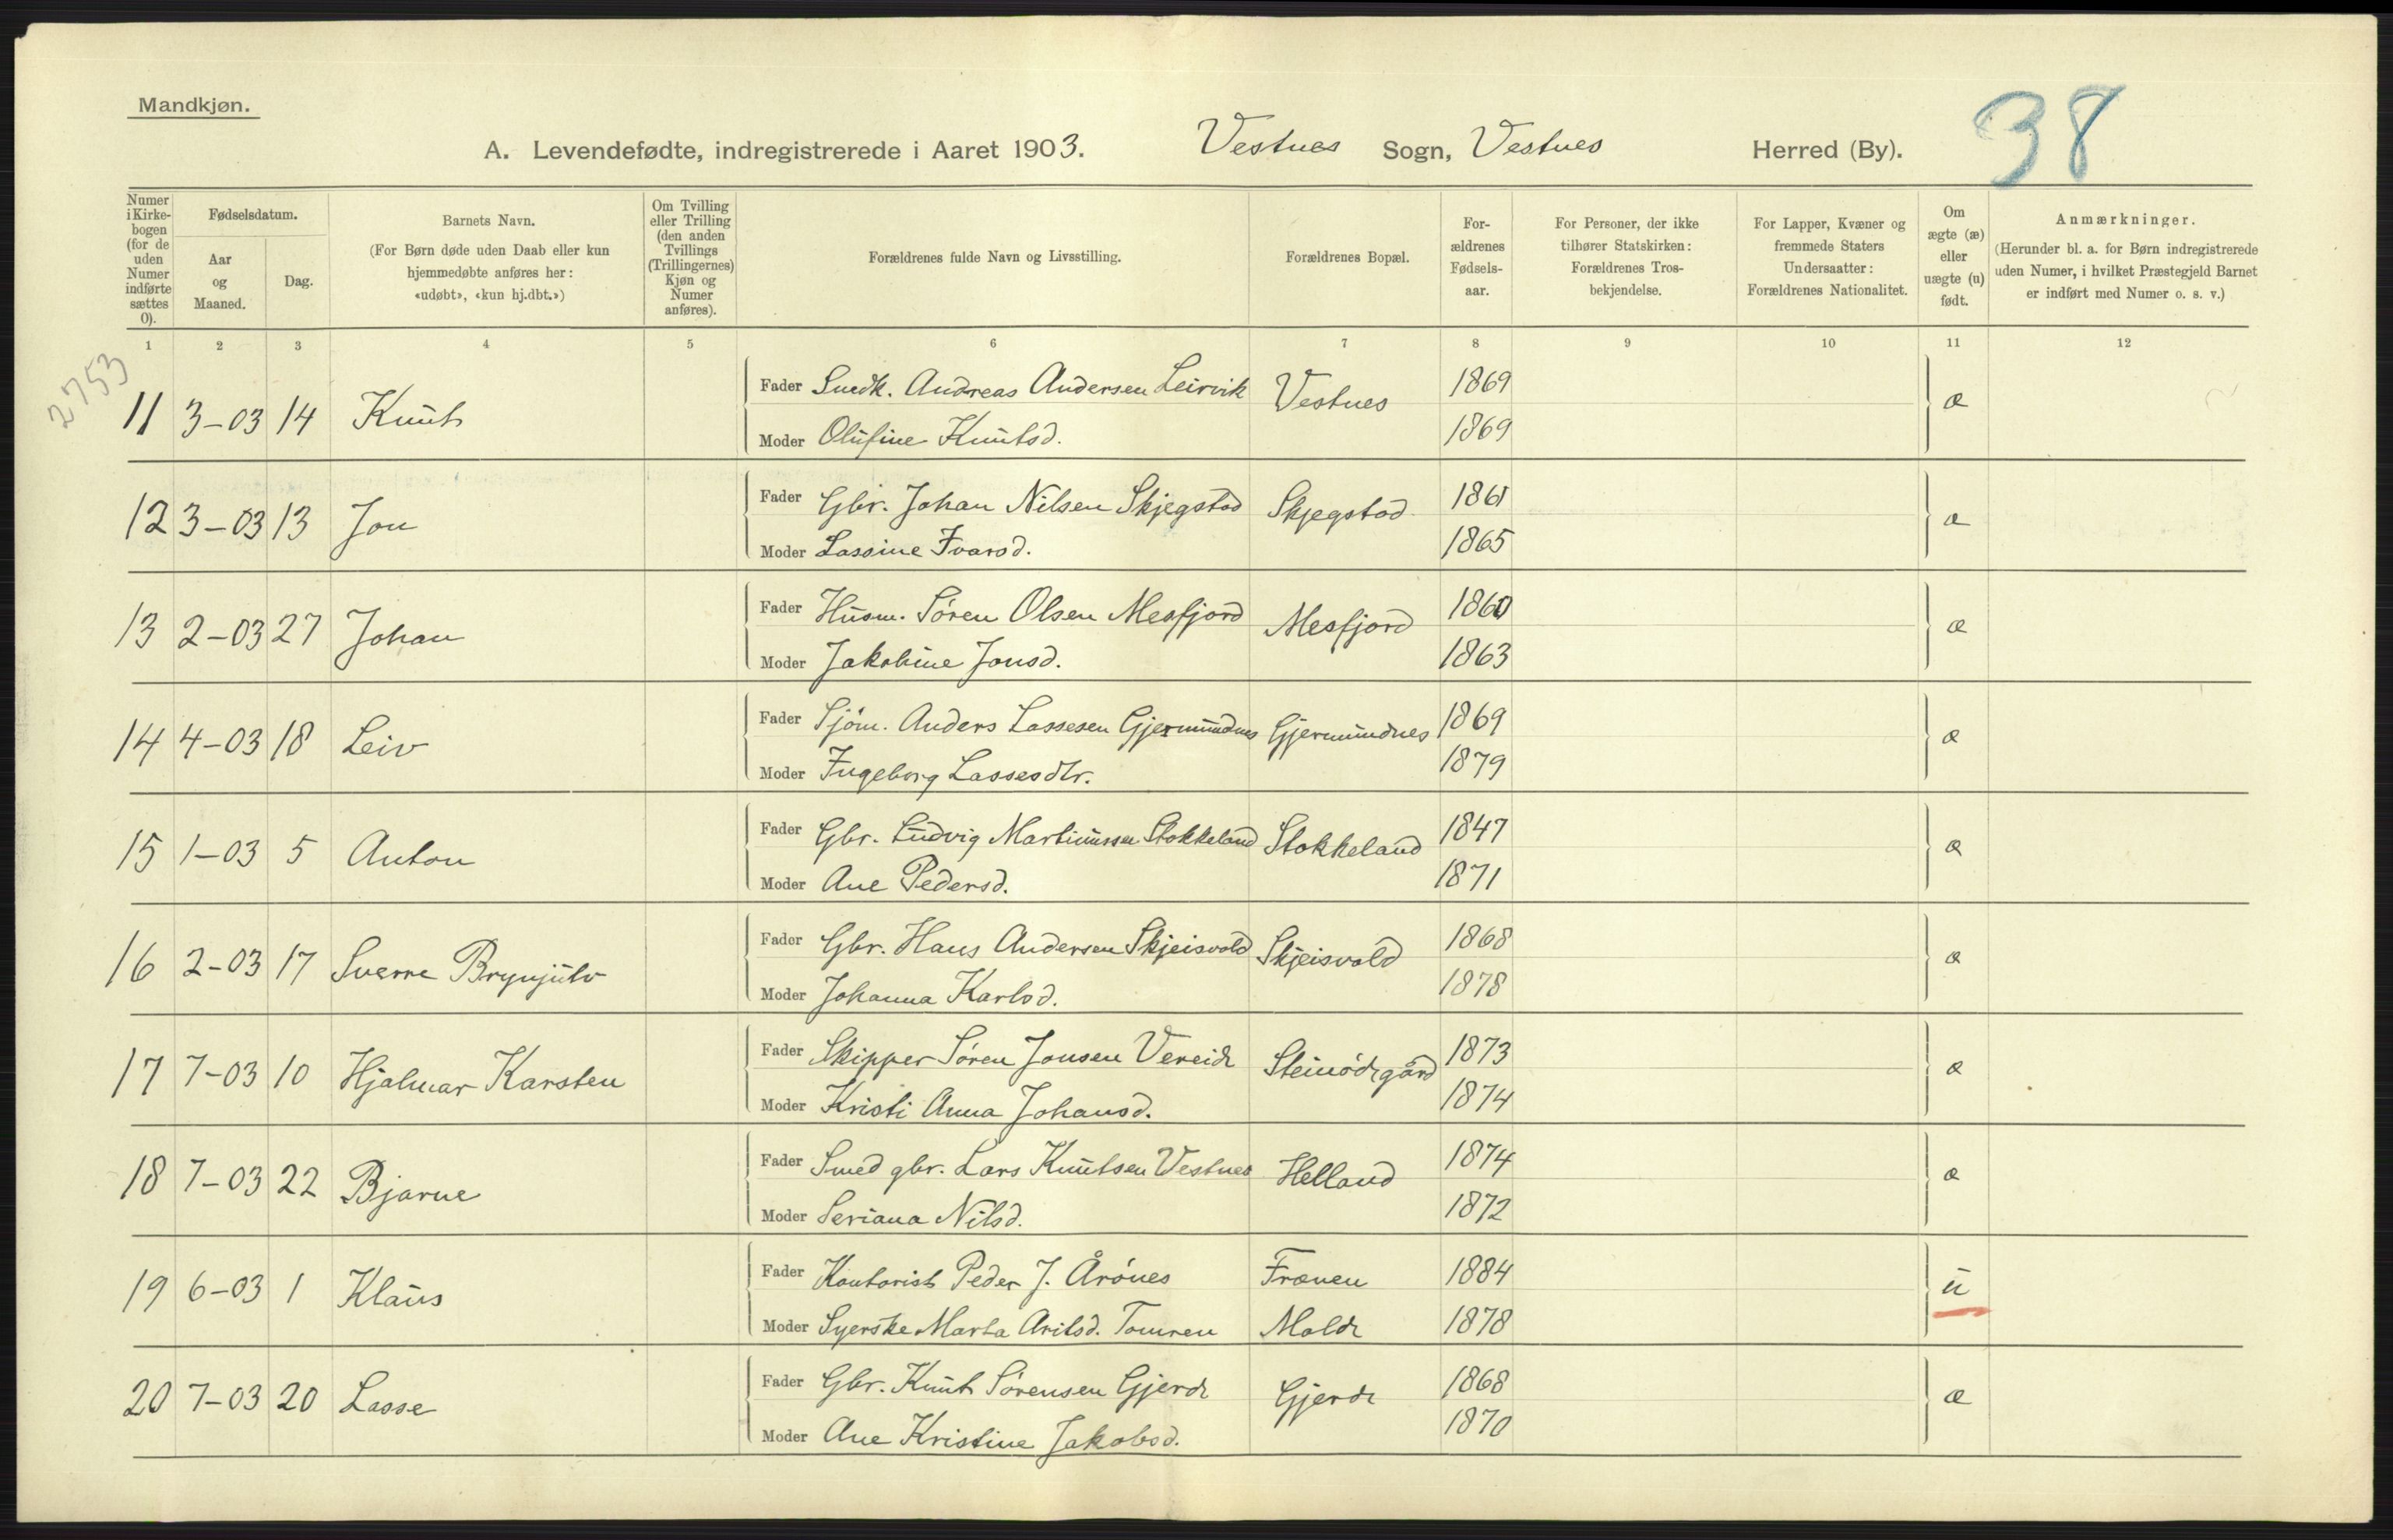 Mandkjøn.
38
A. Levendefødte, indregistrerede i Aaret 1903. Vestnes Sogn, Vestnes Herred (By).
Numer i Kirkebogen (for de uden Numer indførte sættes 0).
Fødselsdatum.
Aar og Maaned.
Dag.
Barnets Navn.
(For Børn døde uden Daab eller kun hjemmedøbte anføres her: «udøbt», «kun hj.dbt.»)
Om Tvilling eller Trilling (den anden Tvillings (Trillingernes) Kjøn og Numer anføres).
Forældrenes fulde Navn og Livsstilling.
Forældrenes Bopæl.
For-ældrenes Fødsels-aar.
For Personer, der ikke tilhører Statskirken: Forældrenes Tros-bekjendelse.
For Lapper, Kvæner og fremmede Staters Undersaatter: Forældrenes Nationalitet.
Om ægte (æ) eller uægte (u) født.
Anmærkninger.
(Herunder bl. a. for Børn indregistrerede uden Numer, i hvilket Præstegjeld Barnet er indført med Numer o. s. v.)
1 2 3 4 5 6 7 8 9 10 11 12
2753
11 3-03 14 Knut Fader Snedk. Andreas Andersen Leirvik Vestnes 1869 æ
Moder Olufine Knutsd. 1869
12 3-03 13 Jon Fader Gbr. Johan Nilsen Skjegstad Skjegstad 1861 æ
Moder Lassine Ivarsd. 1865
13 2-03 27 Johan Fader Husm. Søren Olsen Mesfjord Mesfjord 1860 æ
Moder Jakobine Jonsd. 1863
14 4-03 18 Leiv Fader Sjøm. Anders Lassesen Gjermundnes Gjermundnes 1869 æ
Moder Ingeborg Lassesdtr. 1879
15 1-03 5 Anton Fader Gbr. Ludvig Martinussen Stokkeland Stokkeland 1847 æ
Moder Ane Pedersd. 1871
16 2-03 17 Sverre Brynjulv Fader Gbr. Hans Andersen Skjeisvold Skjeisvold 1868 æ
Moder Johanna Karlsd. 1878
17 7-03 10 Hjalmar Karsten Fader Skipper Søren Jonsen Vereide 1873 æ
Moder Kristi Anna Johansd. 1874
18 7-03 22 Bjarne Fader Smed gbr. Lars Knutsen Vestnes Helland 1874 æ
Moder Seriana Nilsd. 1872
19 6-03 1 Klaus Fader Kontorist Peder J. Årønes Frænen 1884 u
Moder Syerske Marta Arilsd. Tomren Molde 1878
20 7-03 20 Lasse Fader Gbr. Knut Sørensen Gjerde Gjerde 1868 æ
Moder Ane Kristine Jakobsd. 1870